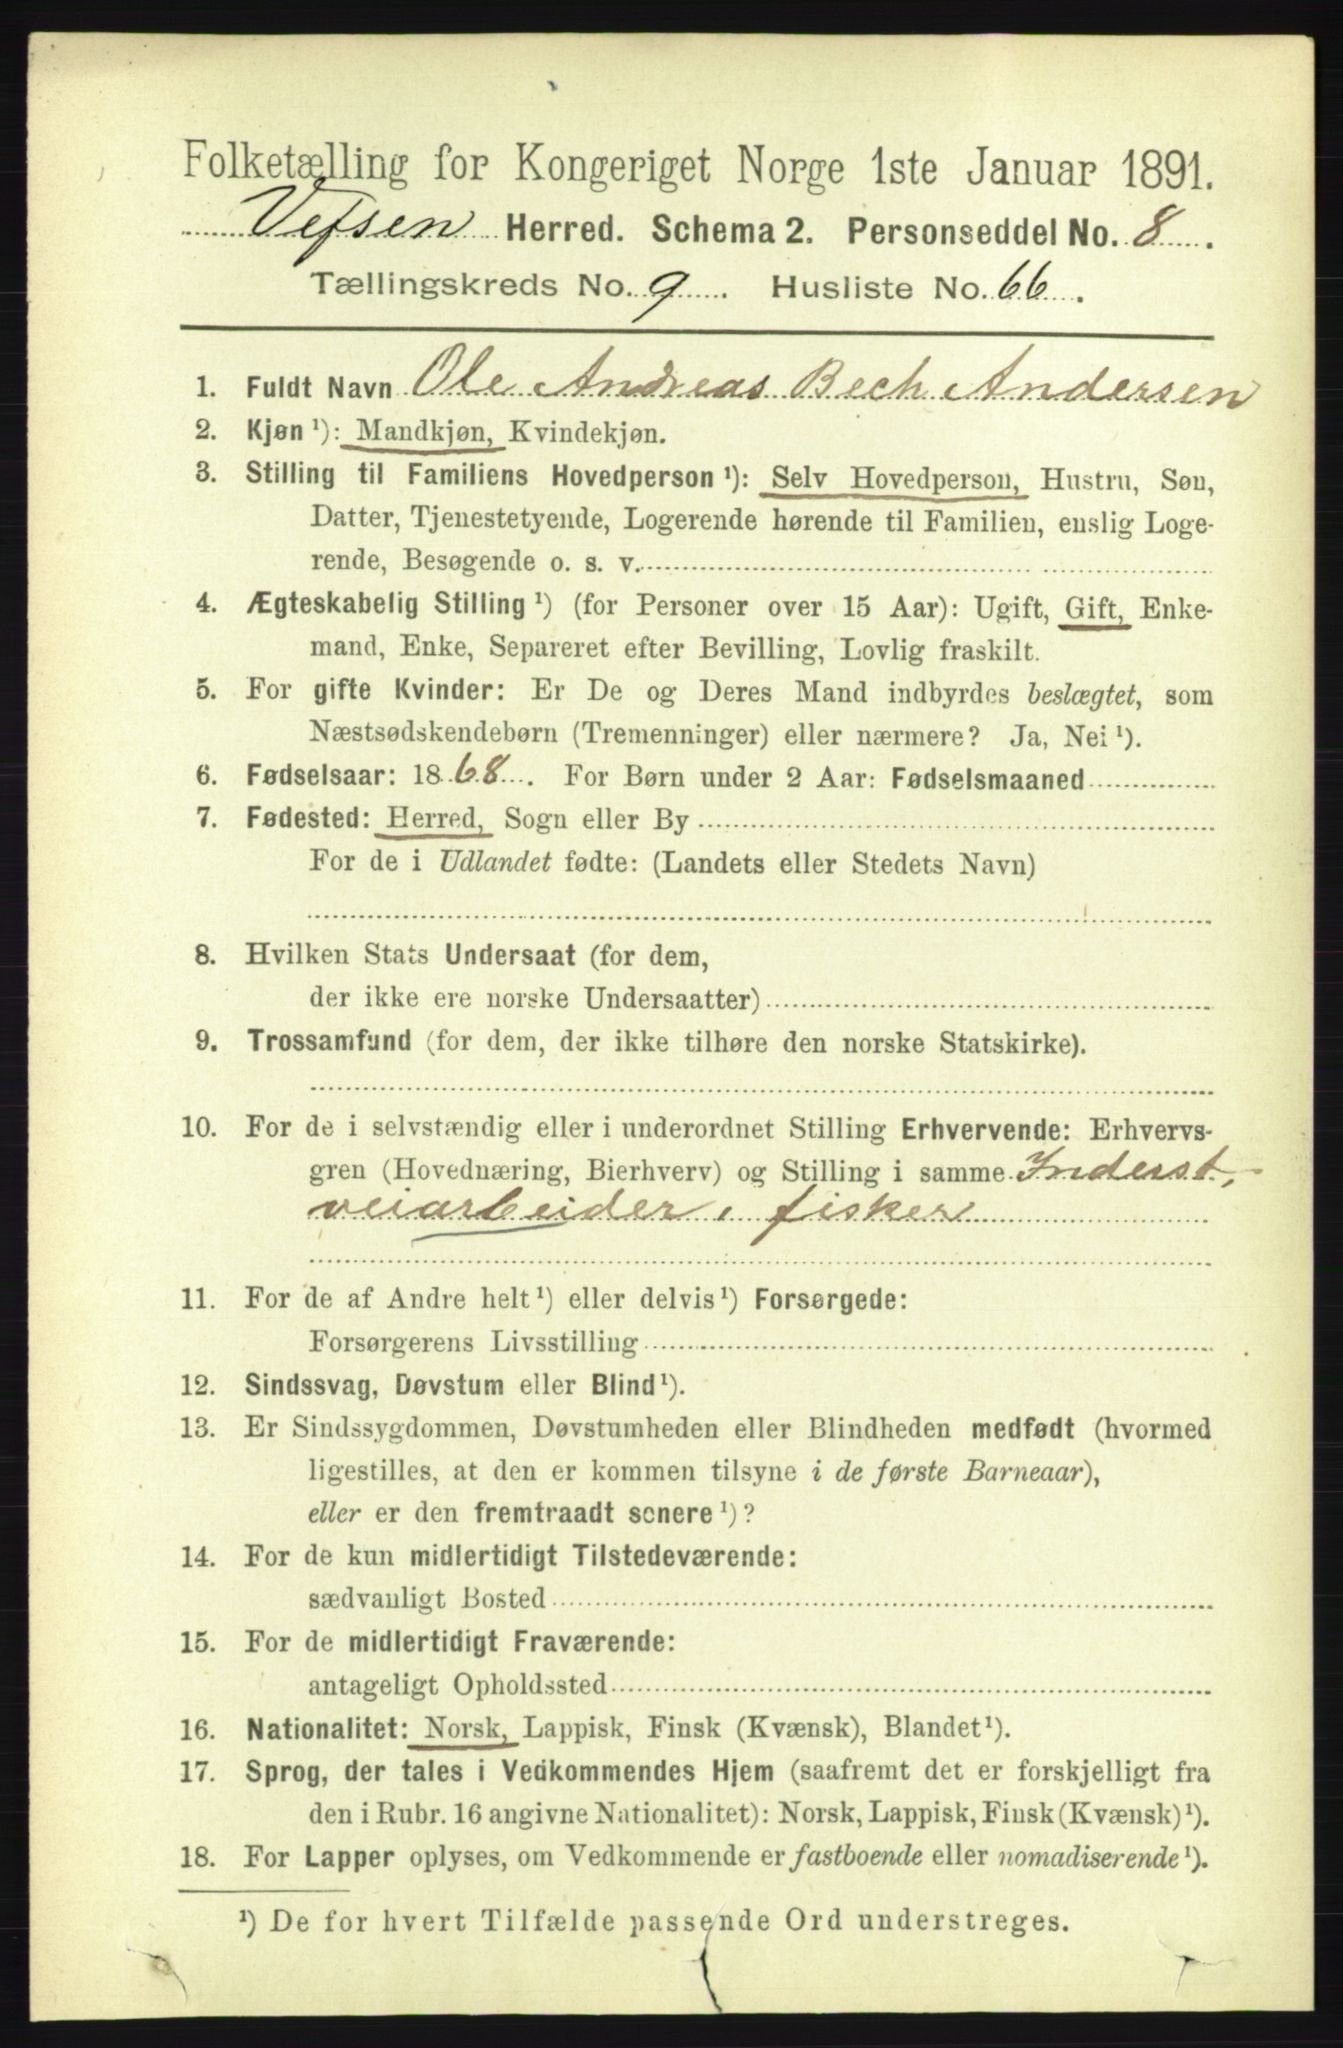 Folketælling for Kongeriget Norge 1ste Januar 1891.
Vefsen Herred. Schema 2. Personseddel No. 8.
Tællingskreds No. 9. Husliste No. 66.
1. Fuldt Navn Ole Andreas Bech Andersen
2. Kjøn ¹): Mandkjøn, Kvindekjøn.
3. Stilling til Familiens Hovedperson ¹): Selv Hovedperson, Hustru, Søn,
Datter, Tjenestetyende, Logerende hørende til Familien, enslig Loge-
rende, Besøgende o. s. v.
4. Ægteskabelig Stilling ¹) (for Personer over 15 Aar): Ugift, Gift, Enke-
mand, Enke, Separeret efter Bevilling, Lovlig fraskilt.
5. For gifte Kvinder: Er De og Deres Mand indbyrdes beslægtet, som
Næstsødskendebørn (Tremenninger) eller nærmere? Ja, Nei ¹).
6. Fødselsaar: 1868. For Børn under 2 Aar: Fødselsmaaned
7. Fødested: Herred, Sogn eller By
For de i Udlandet fødte: (Landets eller Stedets Navn)
8. Hvilken Stats Undersaat (for dem,
der ikke ere norske Undersaatter)
9. Trossamfund (for dem, der ikke tilhøre den norske Statskirke).
10. For de i selvstændig eller i underordnet Stilling Erhvervende: Erhvervs-
gren (Hovednæring, Bierhverv) og Stilling i samme Inderst,
veiarbeider, fisker
11. For de af Andre helt ¹) eller delvis ¹) Forsørgede:
Forsørgerens Livsstilling
12. Sindssvag, Døvstum eller Blind ¹).
13. Er Sindssygdommen, Døvstumheden eller Blindheden medfødt (hvormed
ligestilles, at den er kommen tilsyne i de første Barneaar),
eller er den fremtraadt senere ¹)?
14. For de kun midlertidigt Tilstedeværende:
sædvanligt Bosted
15. For de midlertidigt Fraværende:
antageligt Opholdssted
16. Nationalitet: Norsk, Lappisk, Finsk (Kvænsk), Blandet ¹).
17. Sprog, der tales i Vedkommendes Hjem (saafremt det er forskjelligt fra
den i Rubr. 16 angivne Nationalitet): Norsk, Lappisk, Finsk (Kvænsk) ¹).
18. For Lapper oplyses, om Vedkommende er fastboende eller nomadiserende ¹).
¹) De for hvert Tilfælde passende Ord understreges.